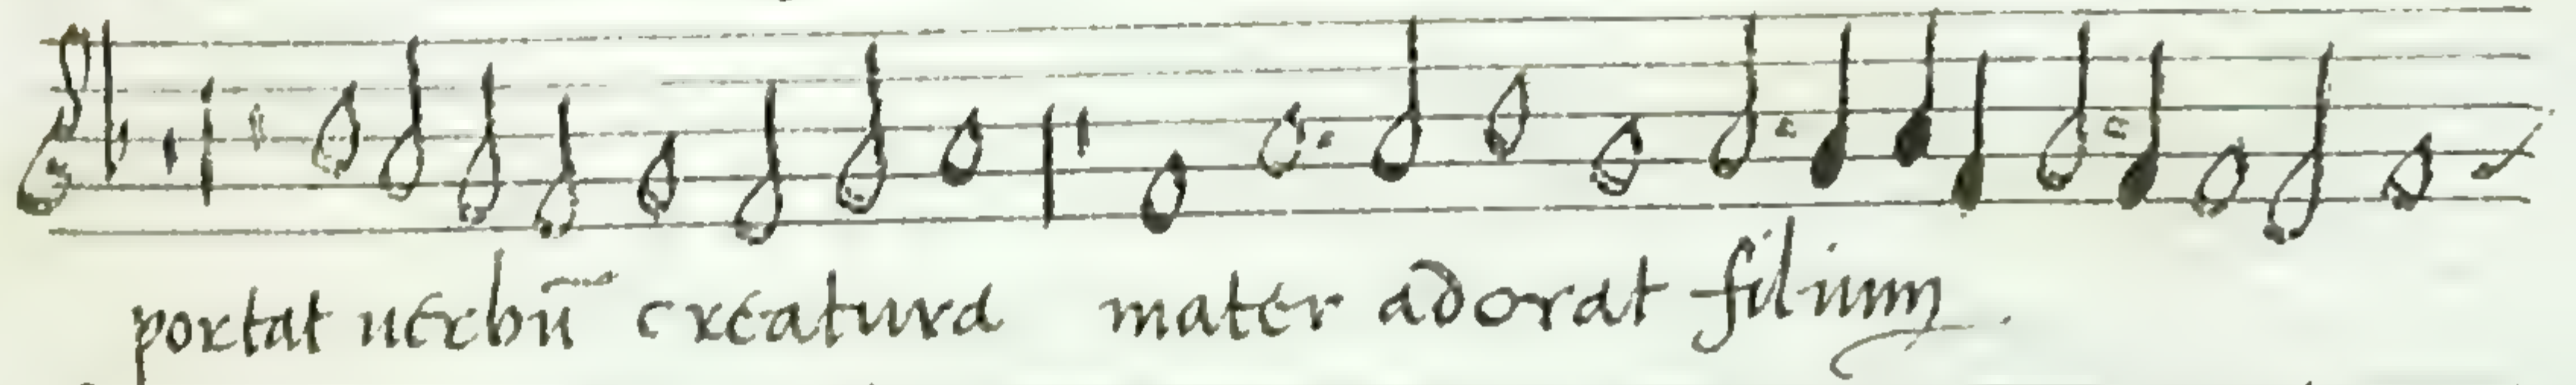 portat uerbū creatura mater adorat filium.